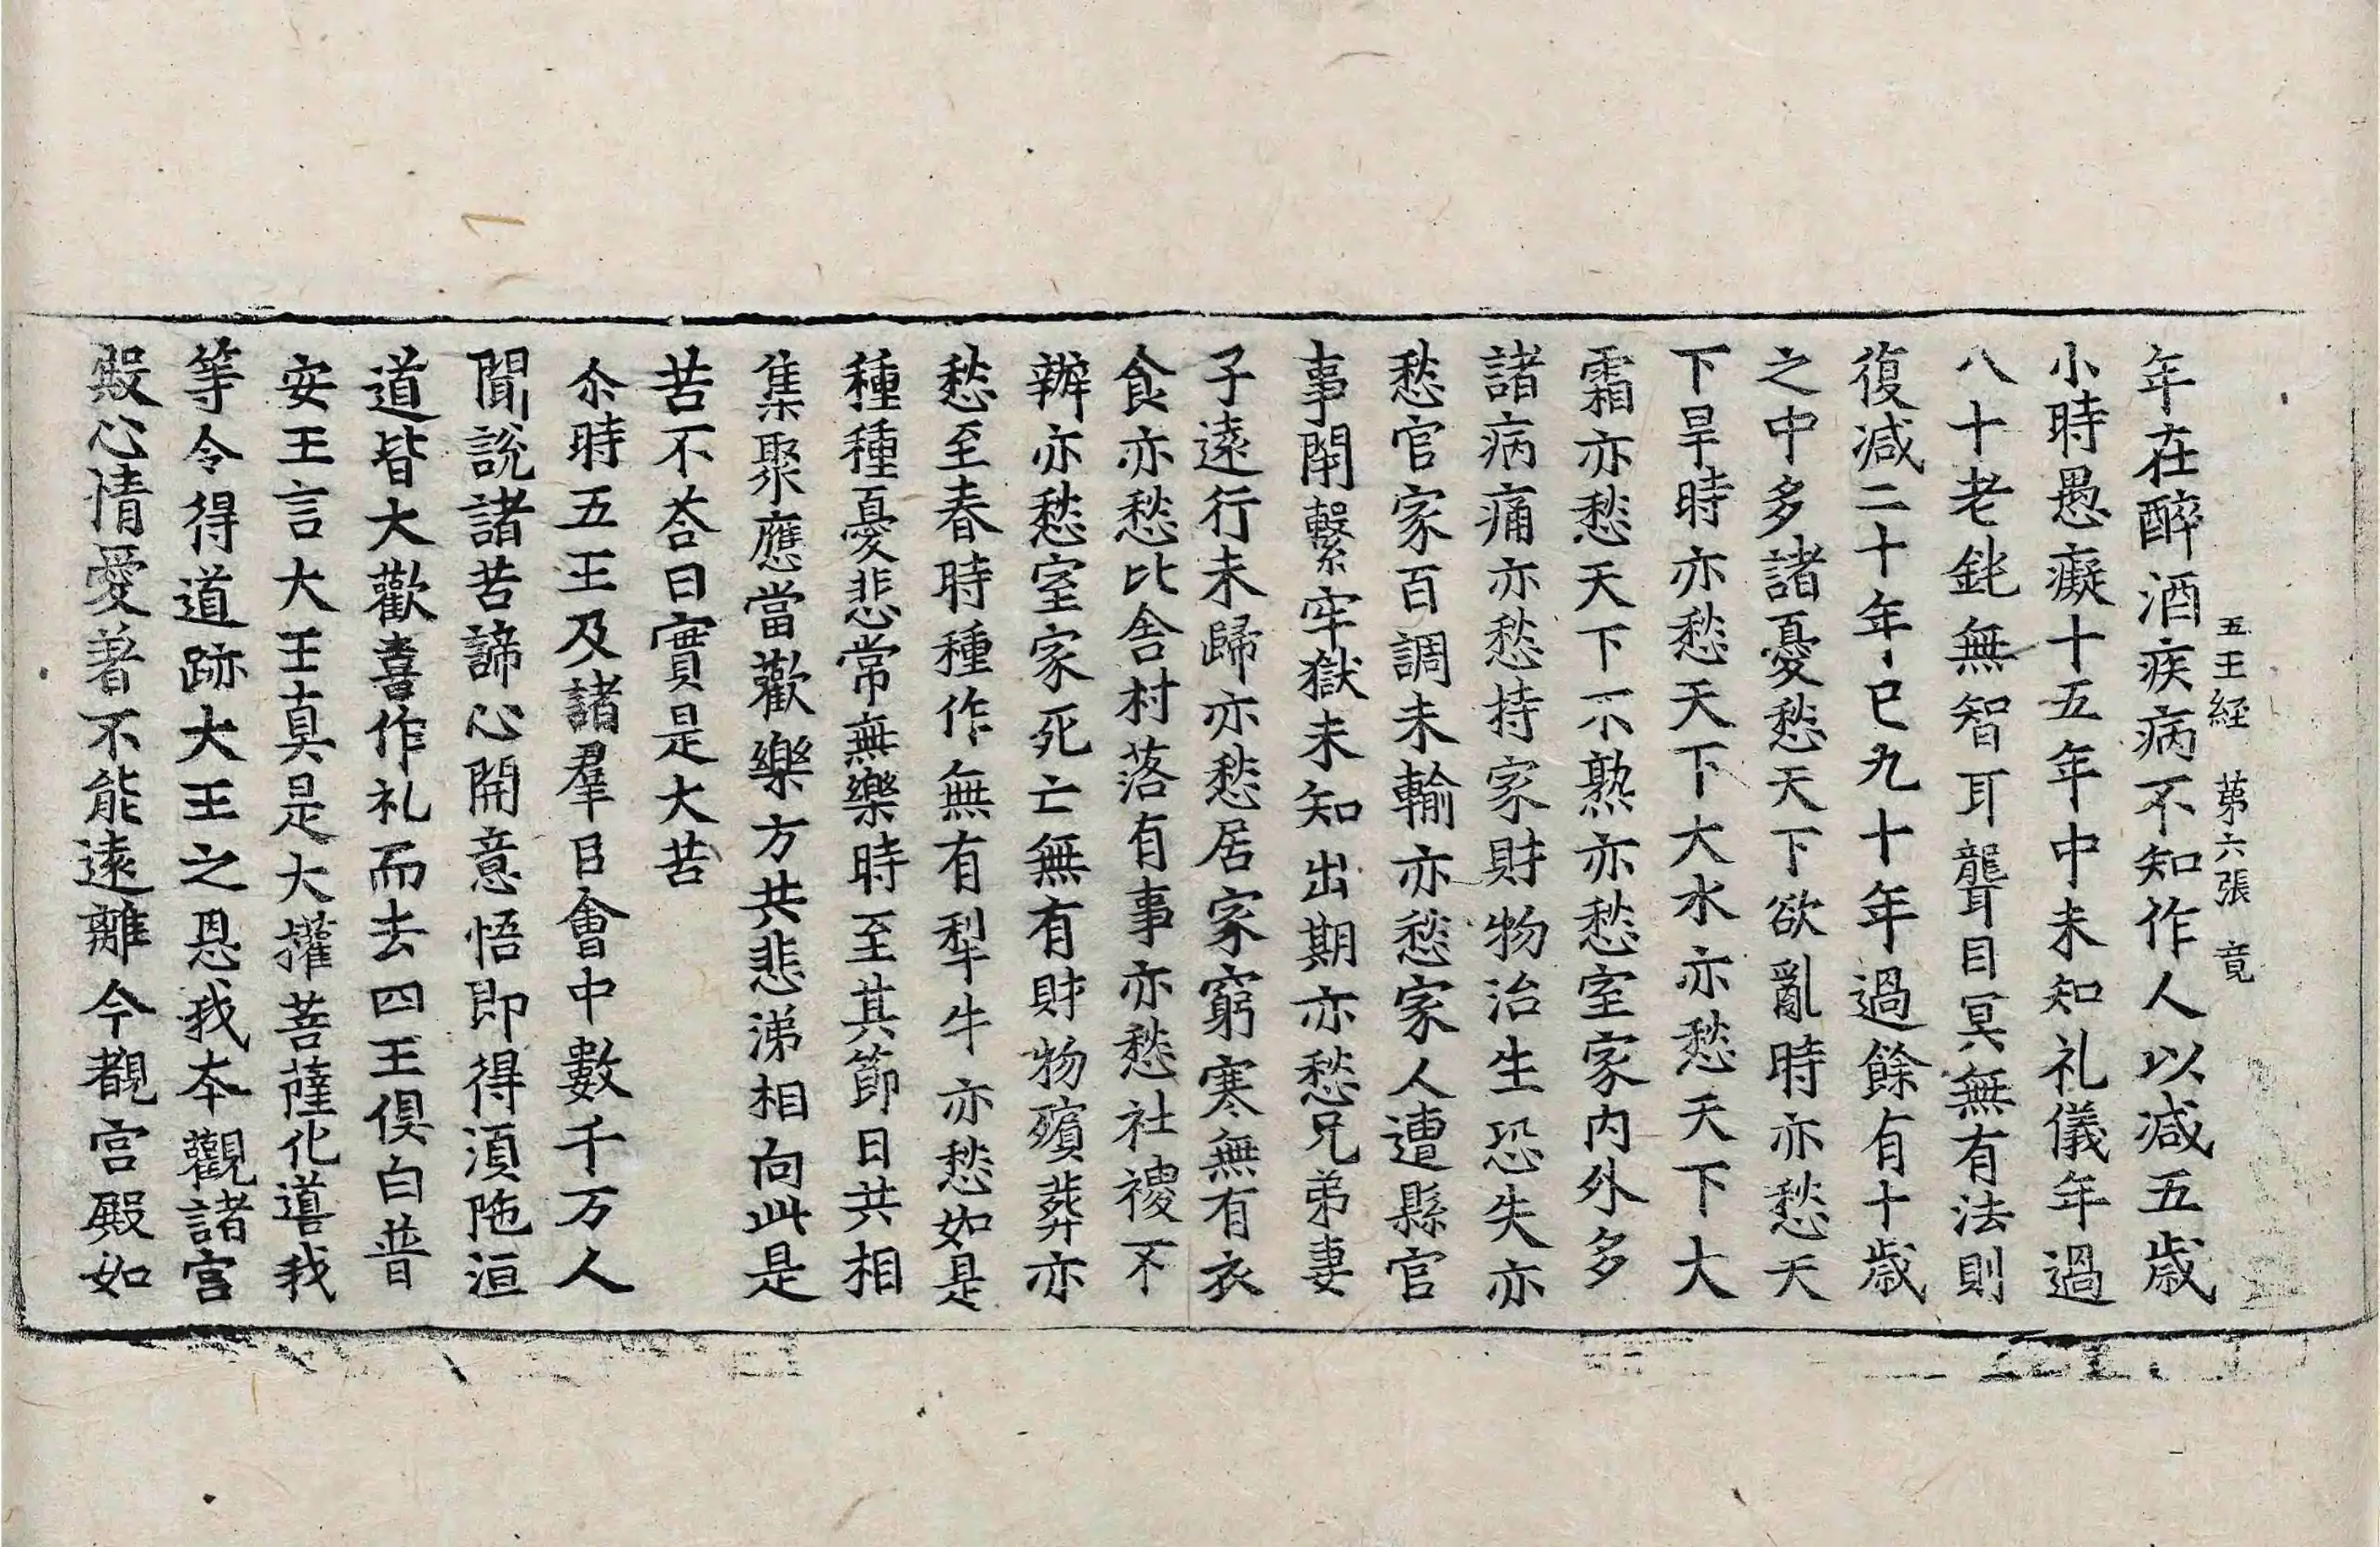 五王經 第六張 竟
年在醉酒疾病不知作人以减五歳
小時愚癡十五年中未知礼儀年過
八十老鈍無智耳聾目冥無有法則
復减二十年已九十年過餘有十歳
之中多諸憂愁天下欲亂時亦愁天
下旱時亦愁天下大水亦愁天下大
霜亦愁天下不熟亦愁室家内外多
諸病痛亦愁持家財物治生恐失亦
愁官家百調未輸亦愁家人遭縣官
事閇繫牢獄未知出期亦愁兄弟妻
子遠行未歸亦愁居家窮寒無有衣
食亦愁比舍村落有事亦愁社禝不
辦亦愁室家死亡無有財物殯葬亦
愁至春時種作無有犁牛亦愁如是
種種憂悲常無樂時至其節日共相
集聚應當歡樂方共悲涕相向此是
苦不荅曰實是大苦
尒時五王及諸羣臣會中數千万人
聞說諸苦諦心開意悟即得湏陁洹
道皆大歡喜作礼而去四王俱白普
安王言大王真是大權菩薩化導我
等令得道跡大王之恩我本觀諸宮
殿心情愛著不能遠離今覩宮殿如